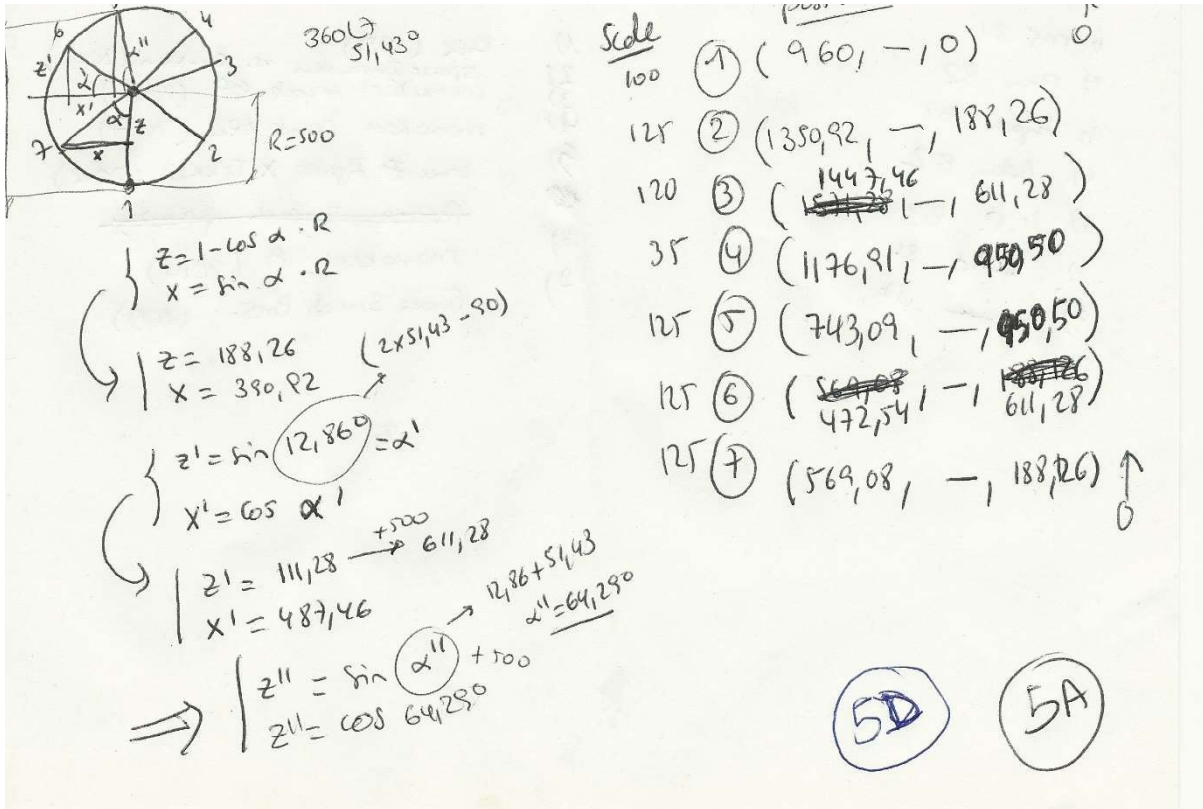 360
51,43º
6
5
4
3
2
1
7
z'
α''
α'
x'
α
z
x
R=500
z = 1-cos α · R
x = sin α · R
z = 188,26
x = 390,92
(2x51,43-90)
z' = sin 12,86º = α'
x' = cos α'
z' = 111,28 +500 → 611,28
x' = 487,46
12,86+51,43
α''=64,29º
z'' = sin α'' +500
z'' = cos 64,29º
Scale
0
100 ① (960, —, 0)
125 ② (1350,92, —, 188,26)
120 ③ (1447,46, —, 611,28)
35 ④ (1176,91, —, 950,50)
125 ⑤ (743,09, —, 950,50)
125 ⑥ (472,54, —, 611,28)
125 ⑦ (569,08, —, 188,26)
0
5D
5A